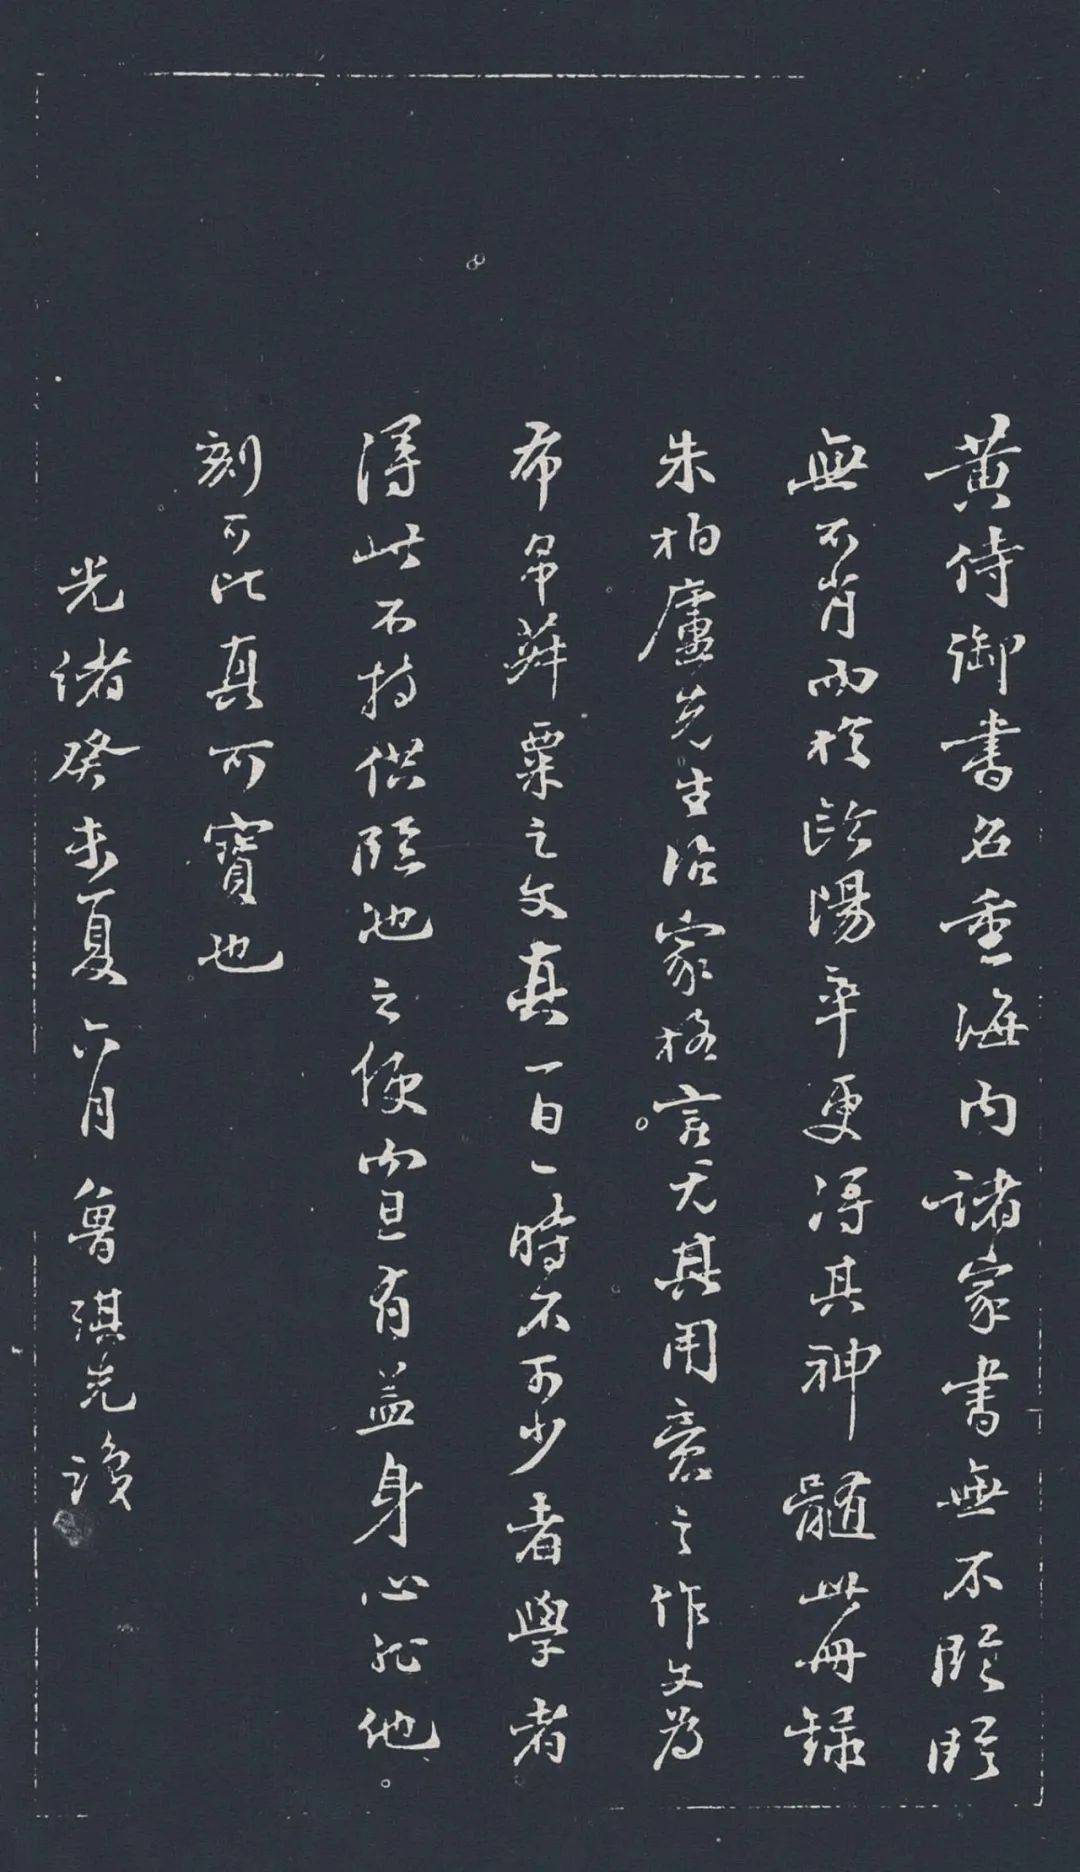 黃侍御書名重海內諸家書無不臨臨
無不肖而於歐陽率更得其神髓此冊錄
朱柏廬先生治家格言尤其用意之作文為
布帛菽粟之文真一日一時不可少者學者
得此不特供臨池之便而且有益身心非他
刻可比真可寶也
光緒癸未夏六月魯琪光識